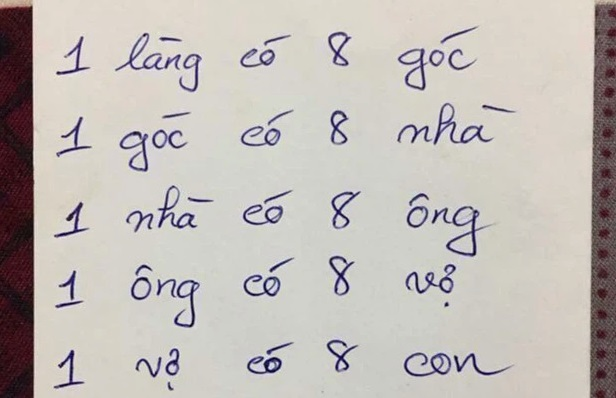 1 làng có 8 góc
1 góc có 8 nhà
1 nhà có 8 ông
1 ông có 8 vợ
1 vợ có 8 con